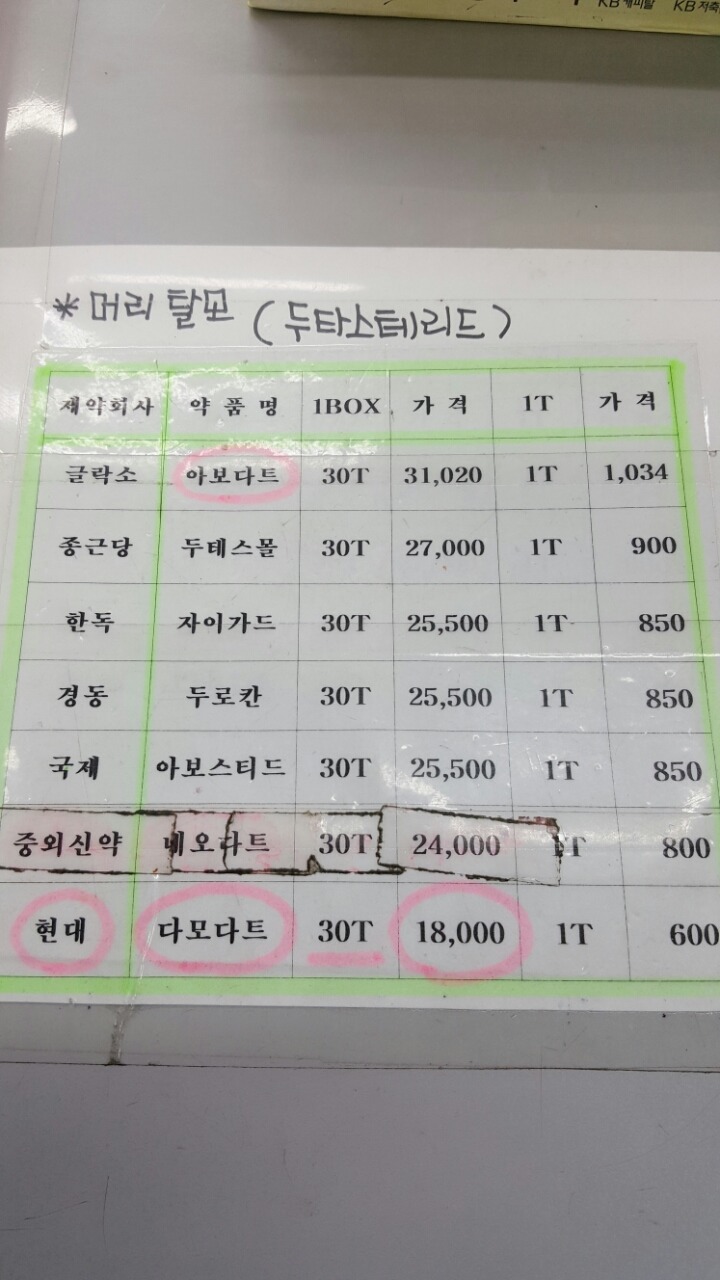 KB캐피탈 KB저축
*머리 탈모 (두타스테리드)
제약회사 약 품 명 1BOX 가 격 1T 가 격
글락소 아보다트 30T 31,020 1T 1,034
종근당 두테스몰 30T 27,000 1T 900
한독 자이가드 30T 25,500 1T 850
경동 두로칸 30T 25,500 1T 850
국제 아보스티드 30T 25,500 1T 850
중외신약 네오다트 30T 24,000 1T 800
현대 다모다트 30T 18,000 1T 600